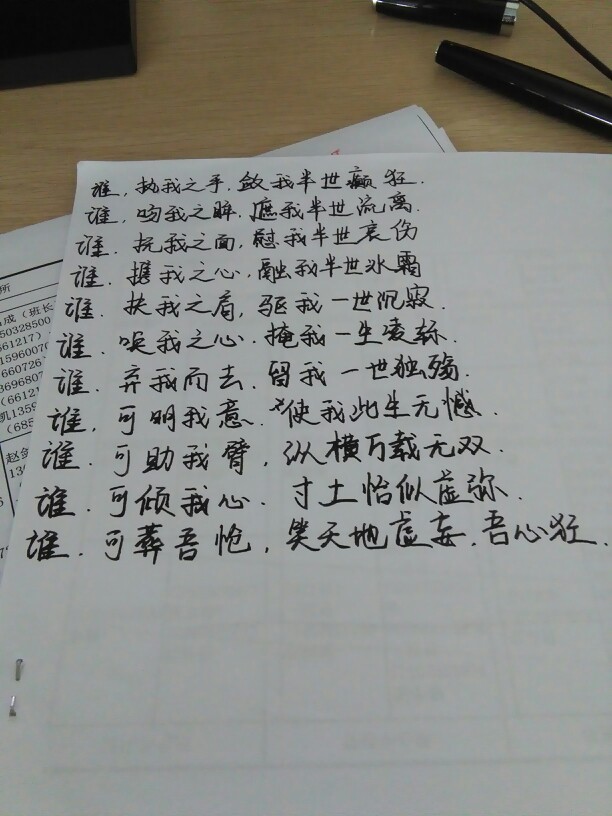 谁,执我之手.敛我半世癫狂.
谁,吻我之眸.遮我半世流离.
谁.抚我之面,慰我半世哀伤
谁.携我之心,融我半世冰霜
谁.扶我之肩,驱我一世沉寂.
谁.唤我之心.掩我一生凌轹.
谁.弃我而去.留我一世独殇.
谁,可明我意.使我此生无憾.
谁.可助我臂,纵横万载无双.
谁.可倾我心.寸土怡似虚弥.
谁.可葬吾怆,笑天地虚妄.吾心狂.
所
成(班长
50328500
661217)
660726
3696807
(6612)
凯1359
(685